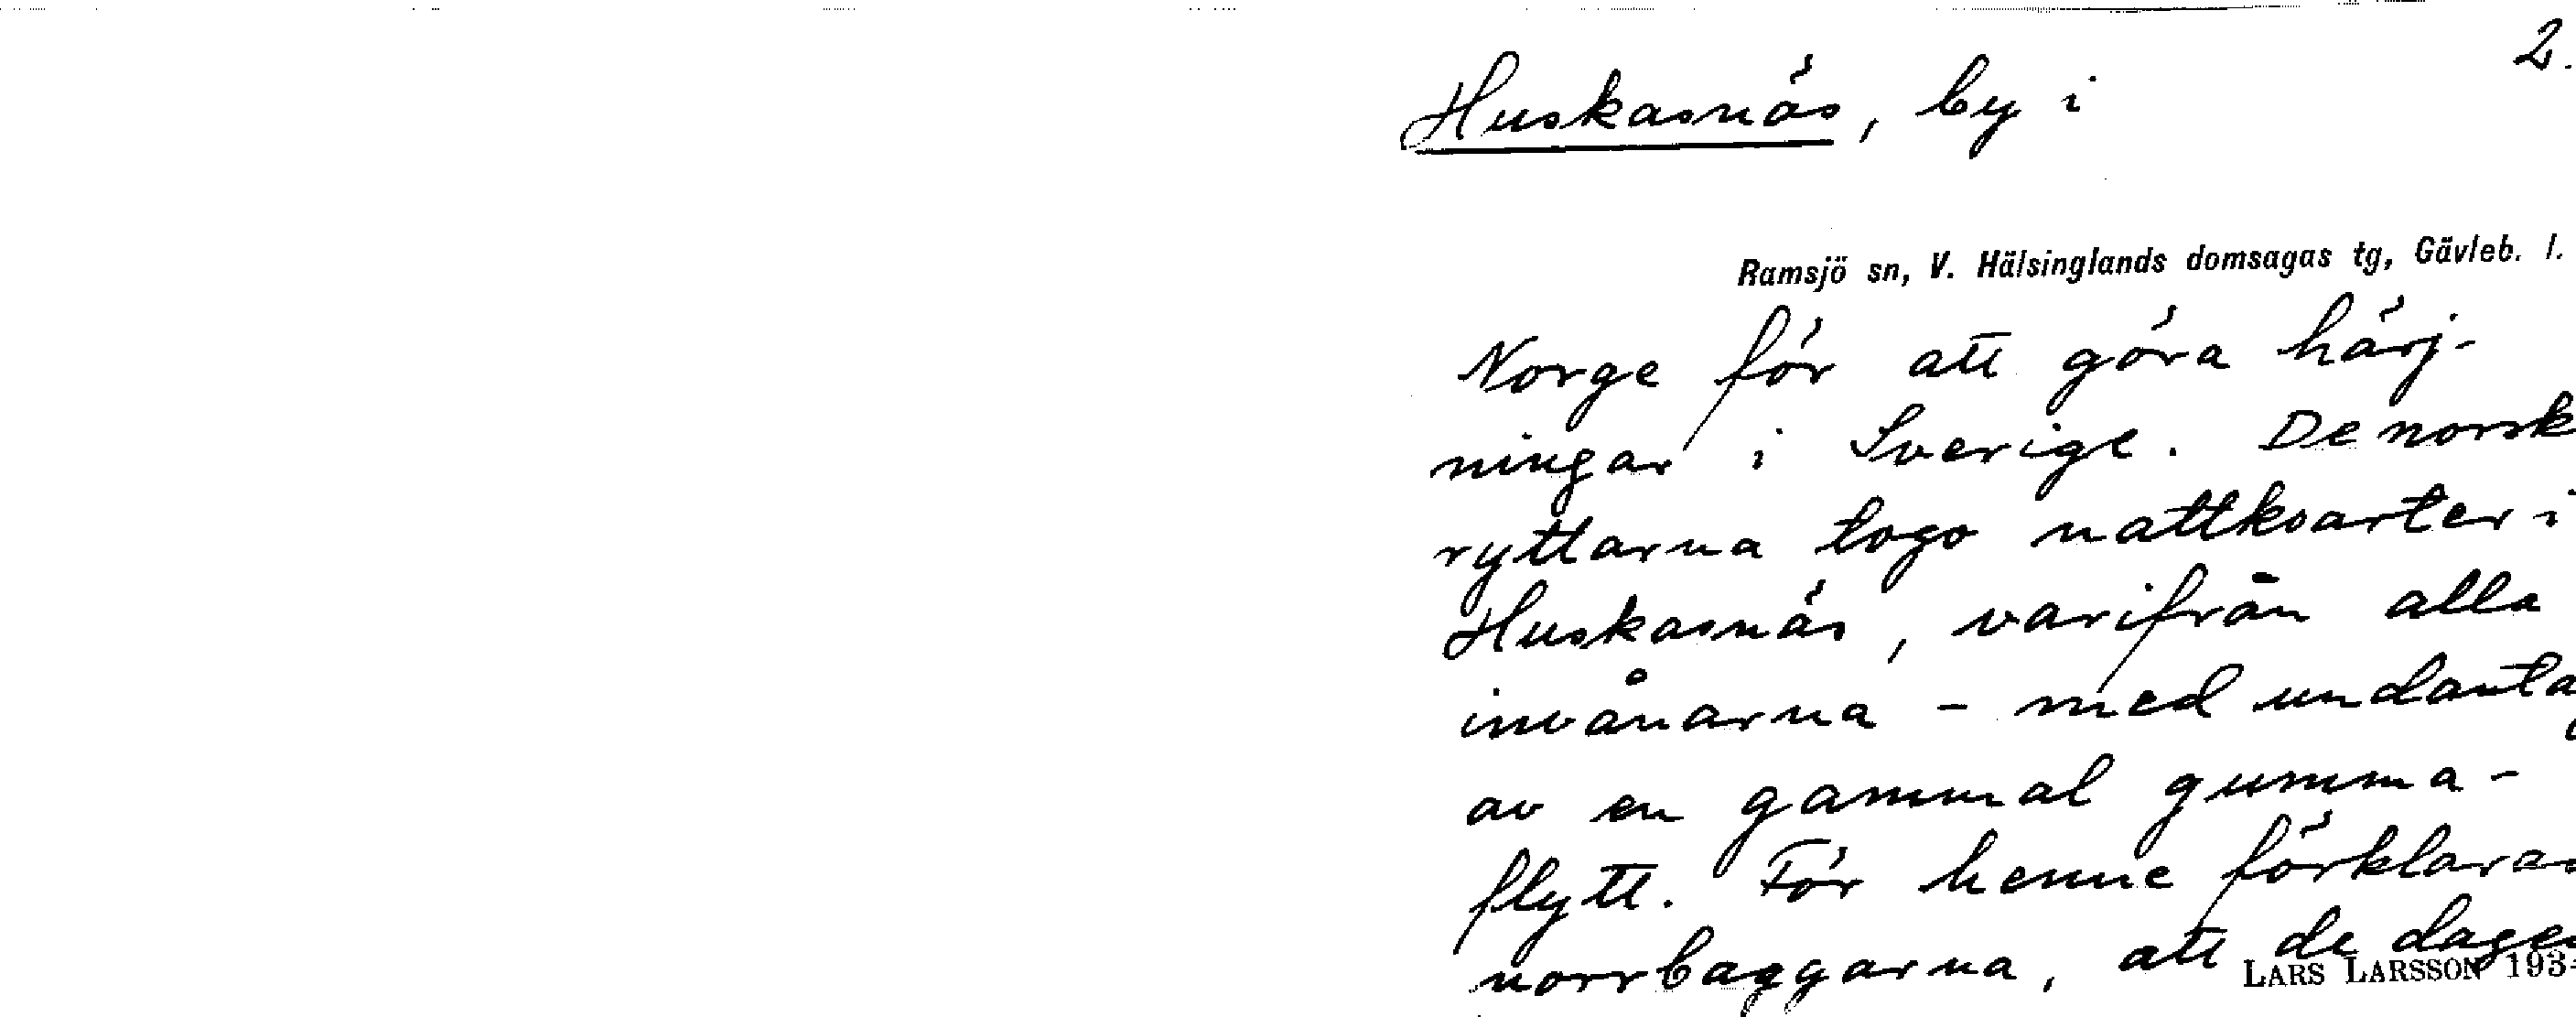 2.
Huskasnäs, by i
Ramsjö sn, V. Hälsinglands domsagas tg, Gävleb. l.
Norge för att göra härj-
ningar i Sverige. De norsk
ryttarna togo nattkvarter i
Huskasnäs, varifrån alla
invånarna - med undantag
av en gammal gumma -
flytt. För henne förklarad
norrbaggarna, att de dagen
LARS LARSSON 193